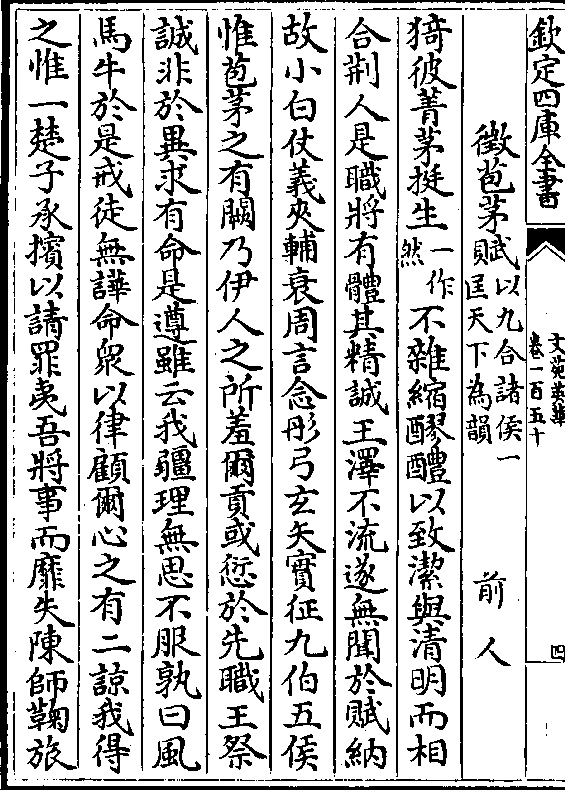 欽定四庫全書
文苑英華
卷一百五十
四
徵苞茅賦以九合諸侯一匡天下為韻
前人
猗彼菁茅挺生一作然不雜縮醪醴以致潔與清明而相
合荆人是職將有體其精誠王澤不流遂無聞於賦納
故小白仗義夾輔衰周言念彤弓玄矢實征九伯五侯
惟苞茅之有闕乃伊人之所羞爾貢或愆於先職王祭
誠非於異求有命是遵雖云我疆理無思不服孰曰風
馬牛於是戒徒無譁命衆以律顧爾心之有二諒我得
之惟一楚子承擯以請罪夷吾將事而靡失陳師鞠旅